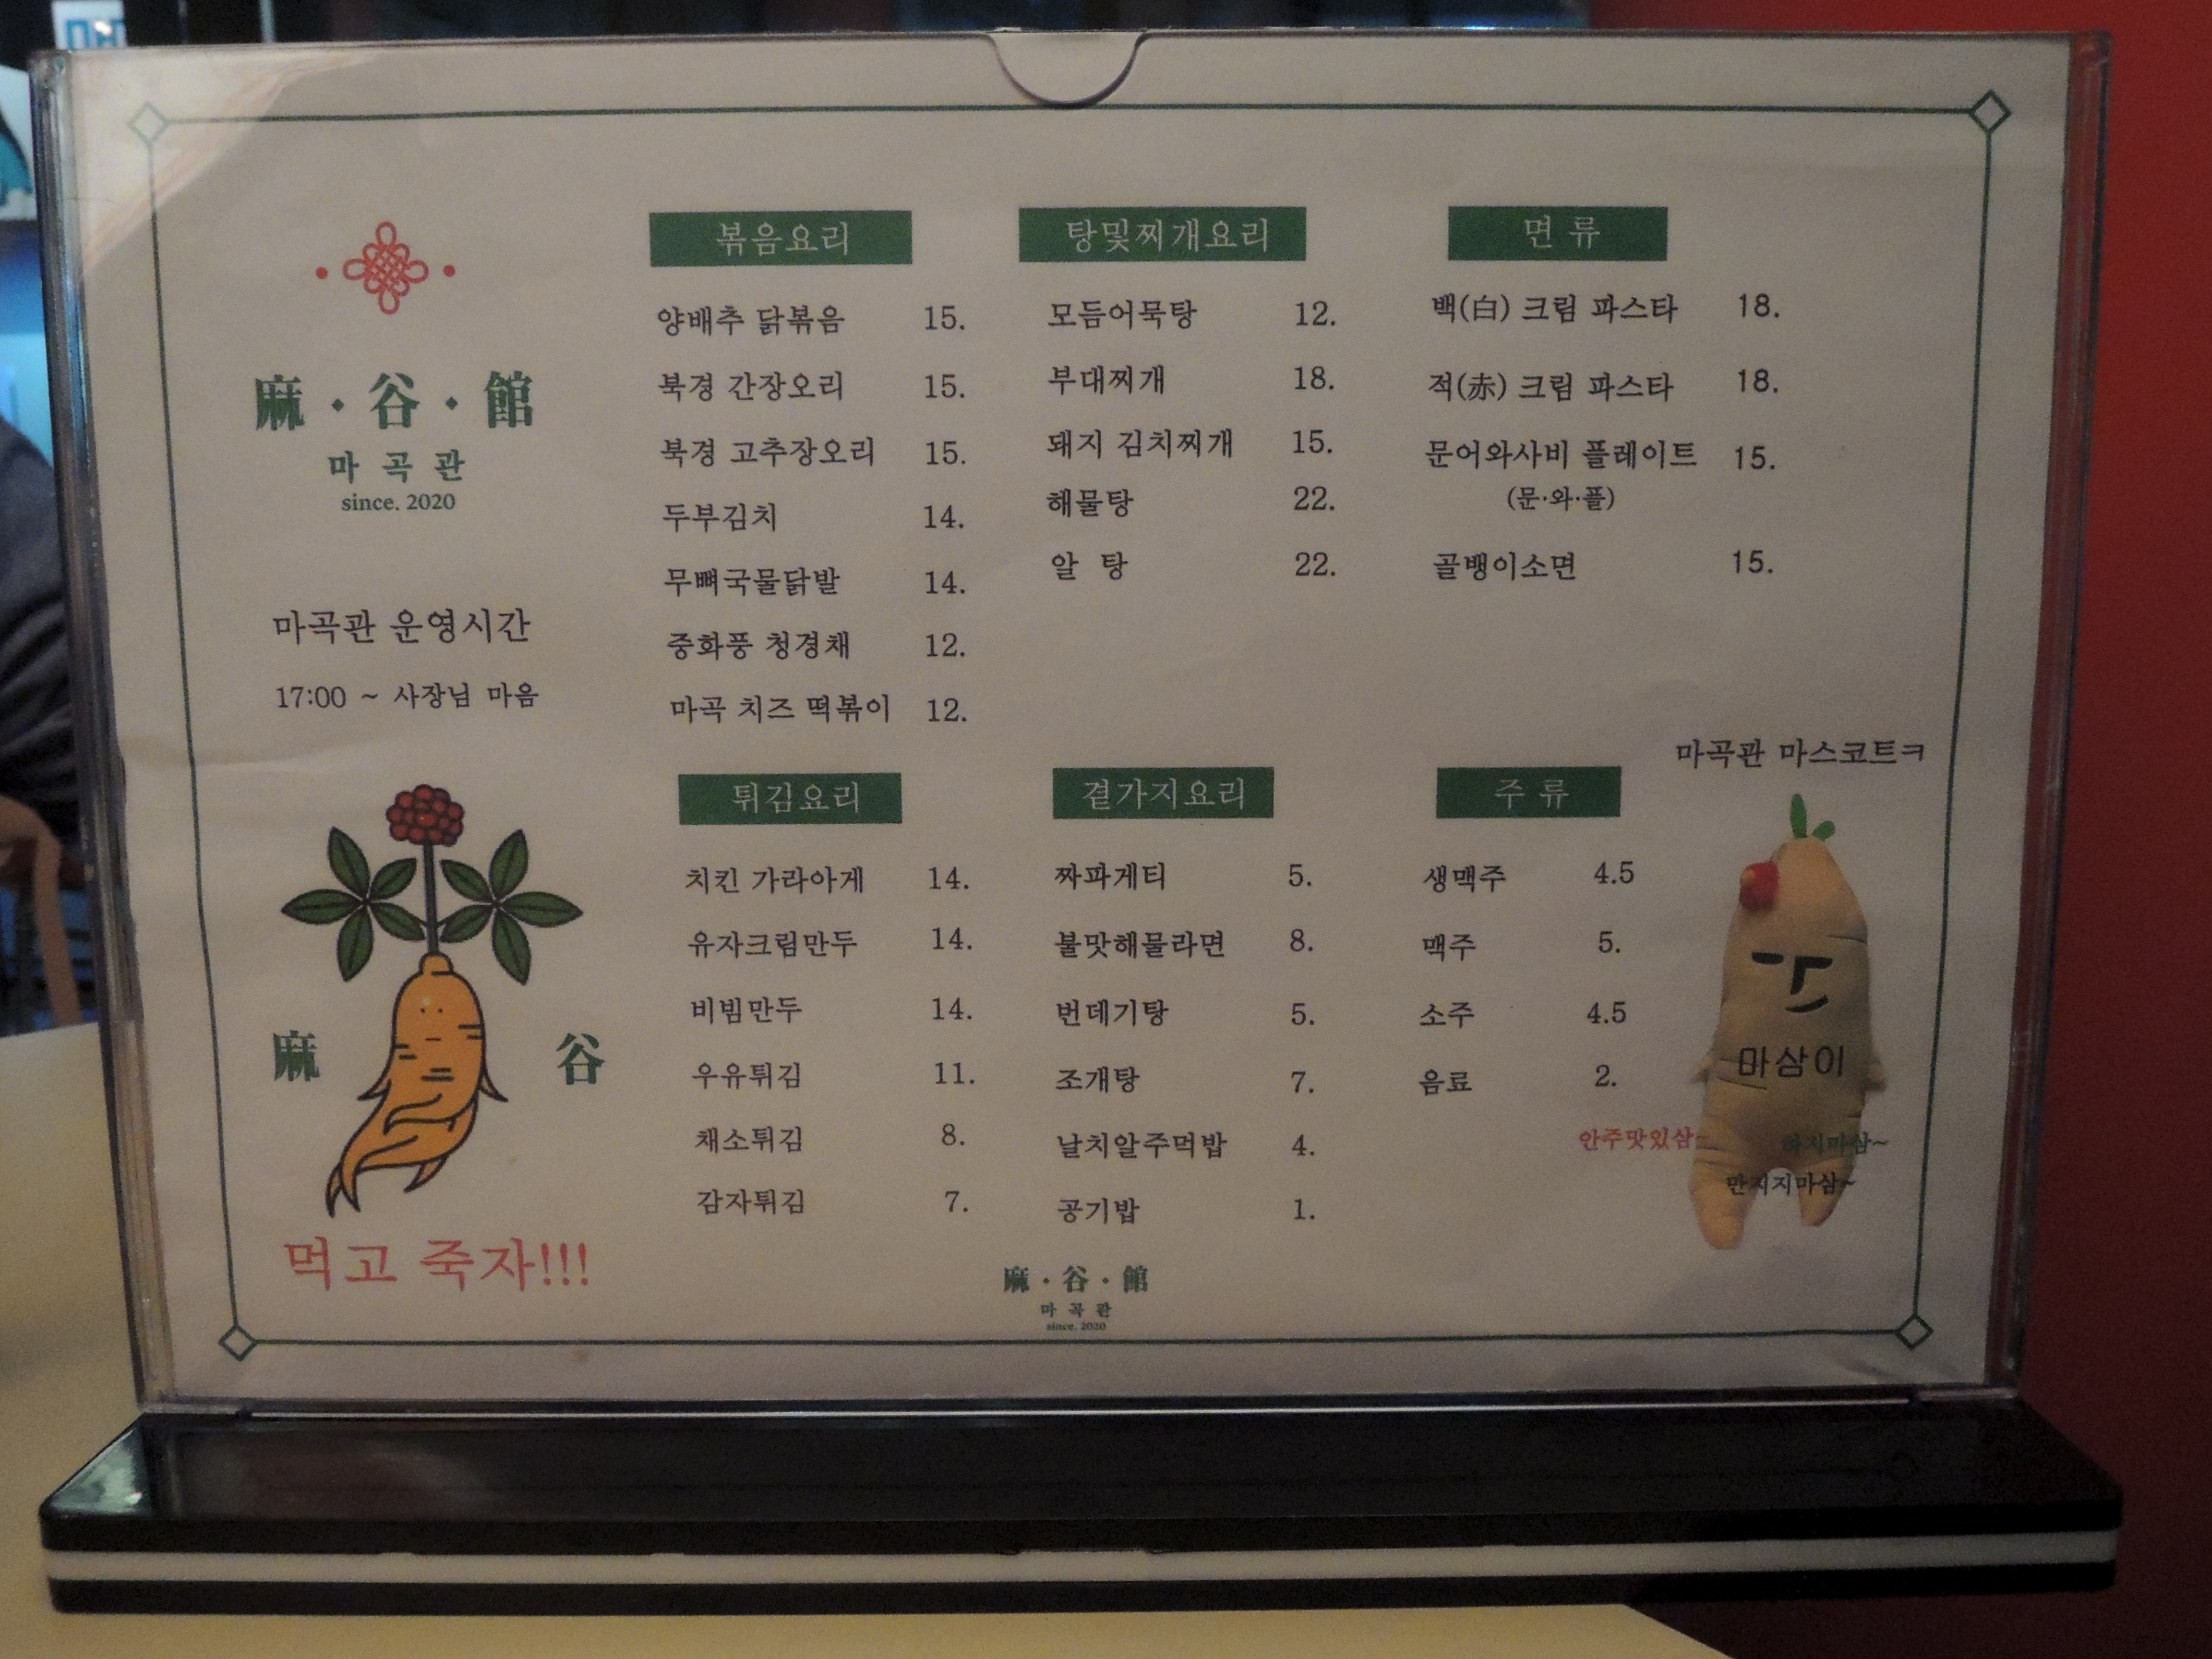 麻·谷·館
마 곡 관
since. 2020
마곡관 운영시간
17:00 ~ 사장님 마음
麻 谷
먹고 죽자!!!
볶음요리
양배추 닭볶음 15.
북경 간장오리 15.
북경 고추장오리 15.
두부김치 14.
무뼈국물닭발 14.
중화풍 청경채 12.
마곡 치즈 떡볶이 12.
탕및찌개요리
모듬어묵탕 12.
부대찌개 18.
돼지 김치찌개 15.
해물탕 22.
알 탕 22.
면 류
백(白) 크림 파스타 18.
적(赤) 크림 파스타 18.
문어와사비 플레이트 15.
(문·와·플)
골뱅이소면 15.
튀김요리
치킨 가라아게 14.
유자크림만두 14.
비빔만두 14.
우유튀김 11.
채소튀김 8.
감자튀김 7.
곁가지요리
짜파게티 5.
불맛해물라면 8.
번데기탕 5.
조개탕 7.
날치알주먹밥 4.
공기밥 1.
주 류
생맥주 4.5
맥주 5.
소주 4.5
음료 2.
마곡관 마스코트ㅋ
마삼이
안주맛있삼~
하지마삼~
만지지마삼~
麻·谷·館
마 곡 관
since. 2020